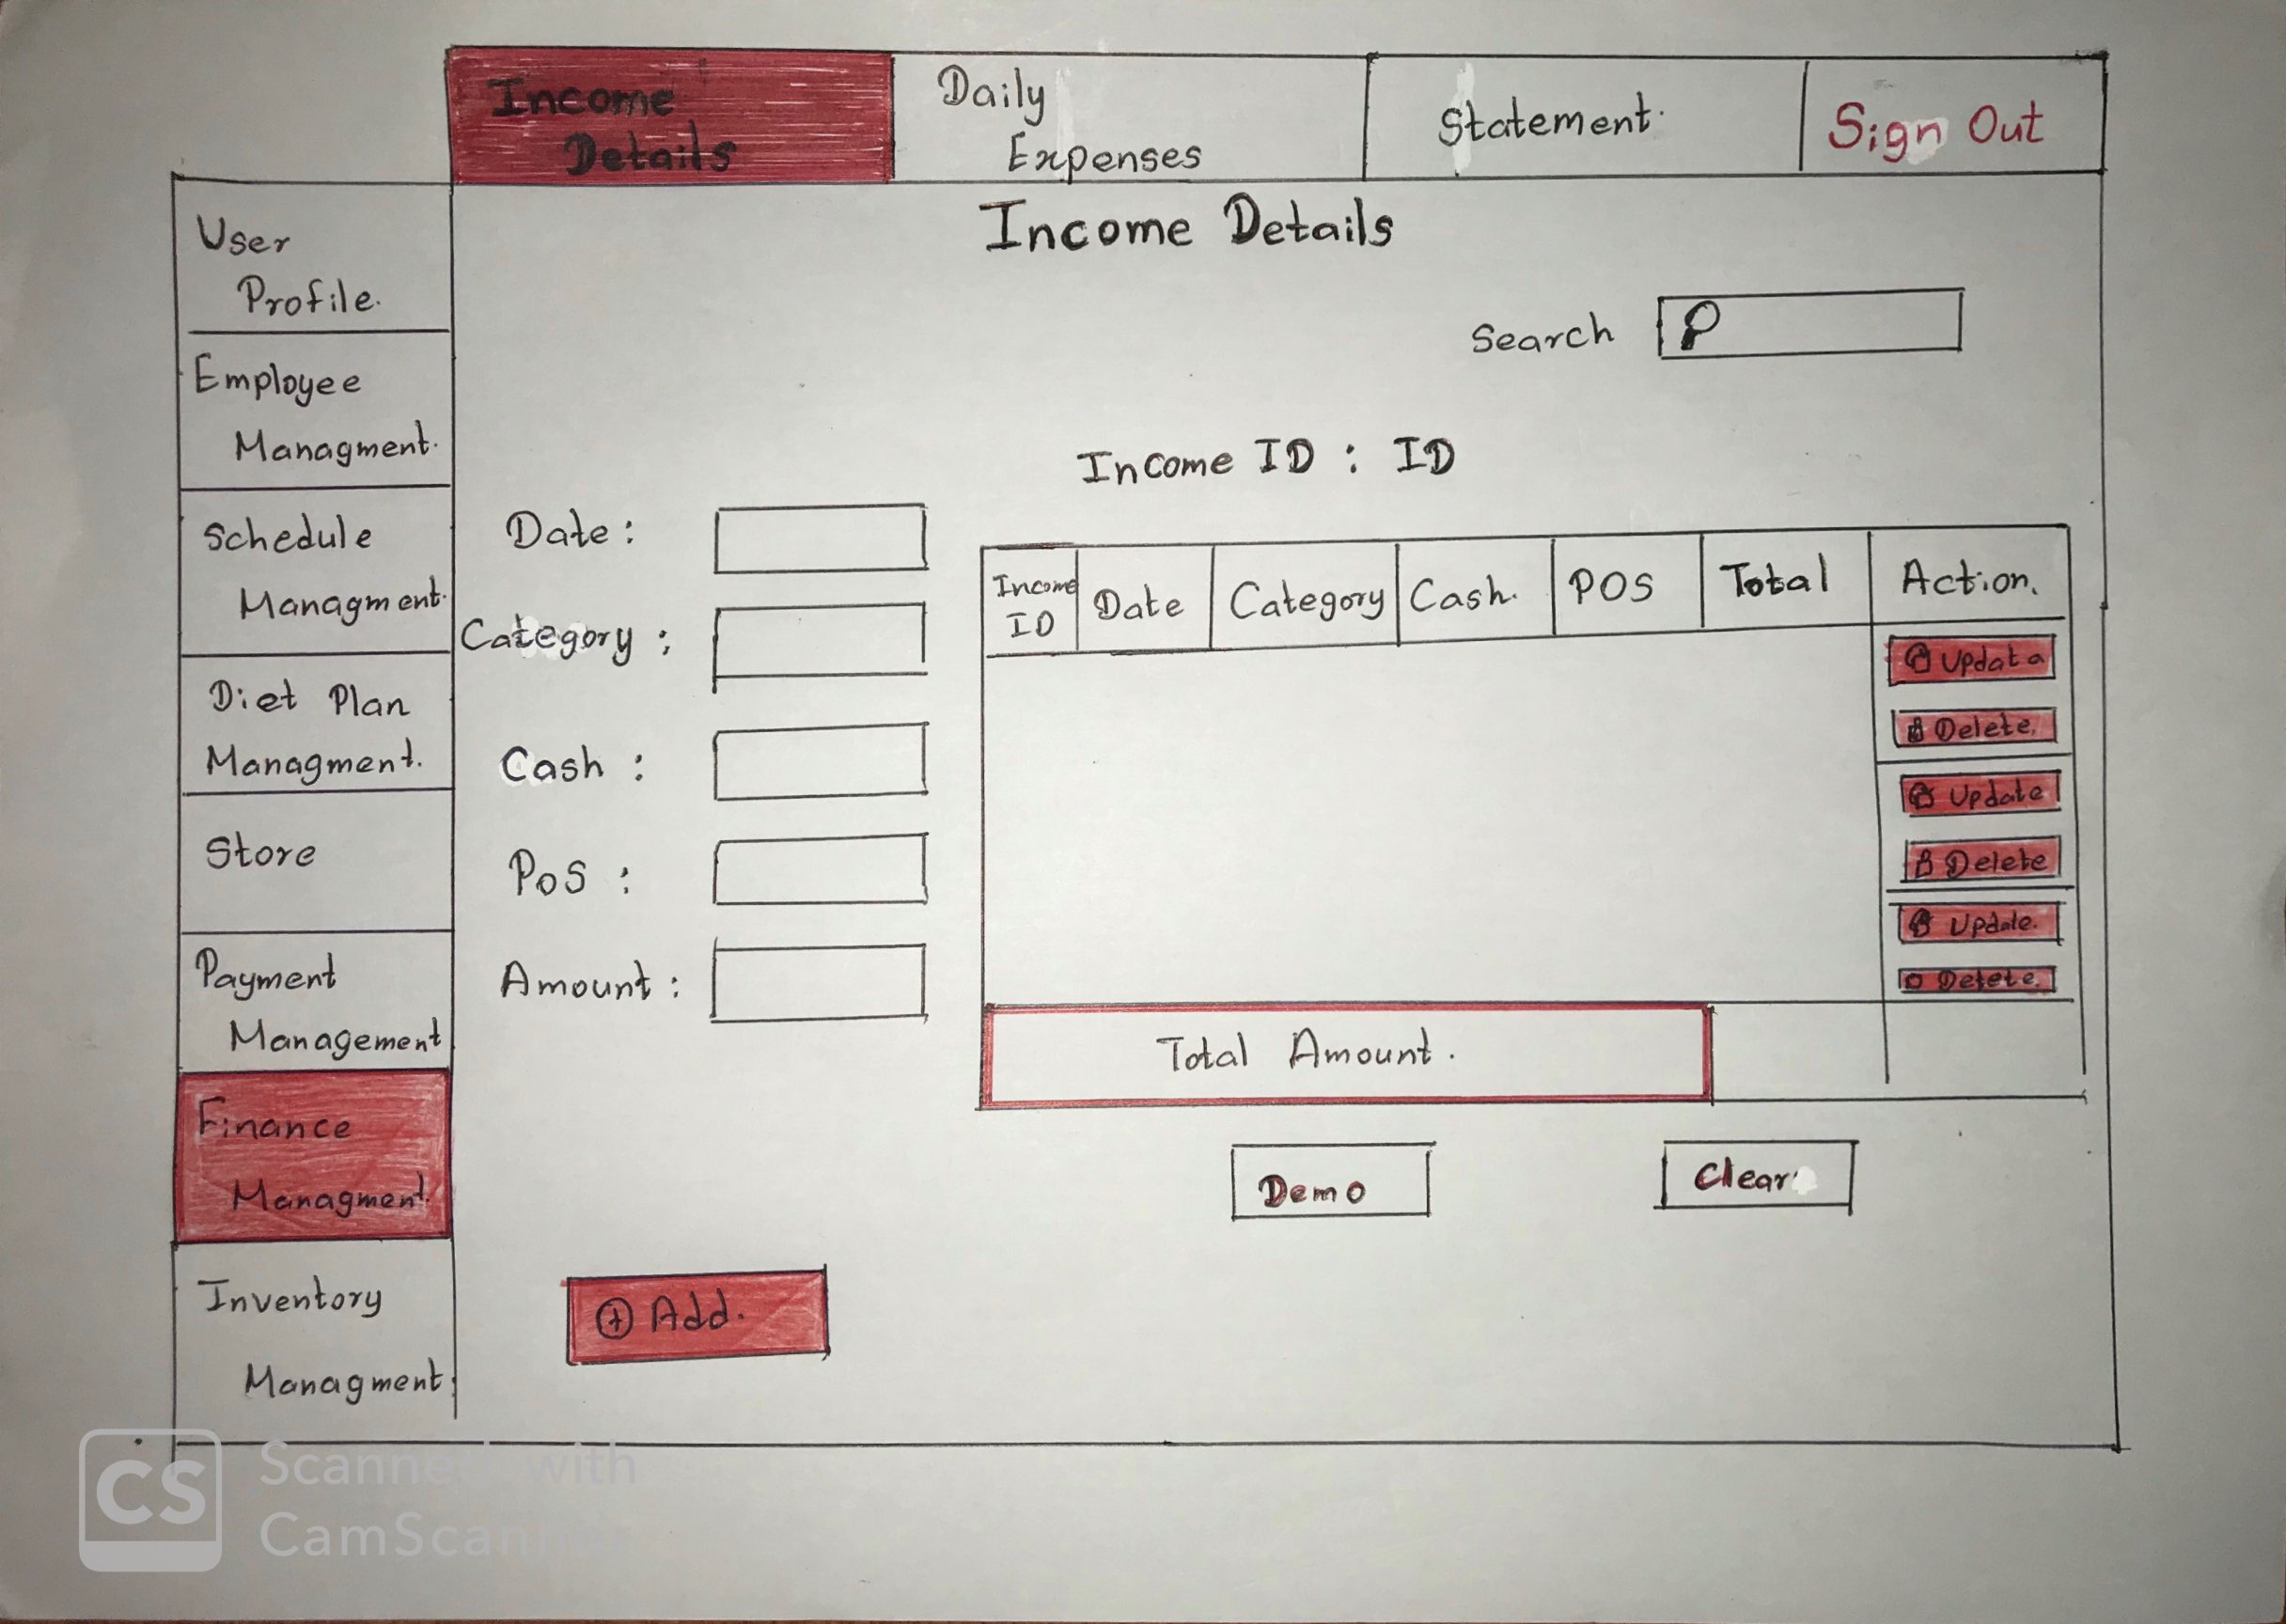 Income
Details
Daily
Expenses
Statement.
Sign Out
User
Profile.
Employee
Managment.
Schedule
Managment.
Diet Plan
Managment.
Store
Payment
Management
Finance
Managment.
Inventory
Managment.
Income Details
Search
Income ID : ID
Date :
Category :
Cash :
PoS :
Amount :
Income
ID
Date
Category
Cash.
POS
Total
Action.
Updata
Delete.
Update
Delete
Update.
Delete.
Total Amount.
Demo
Clear
+ Add.
CS
Scanned with
CamScanner